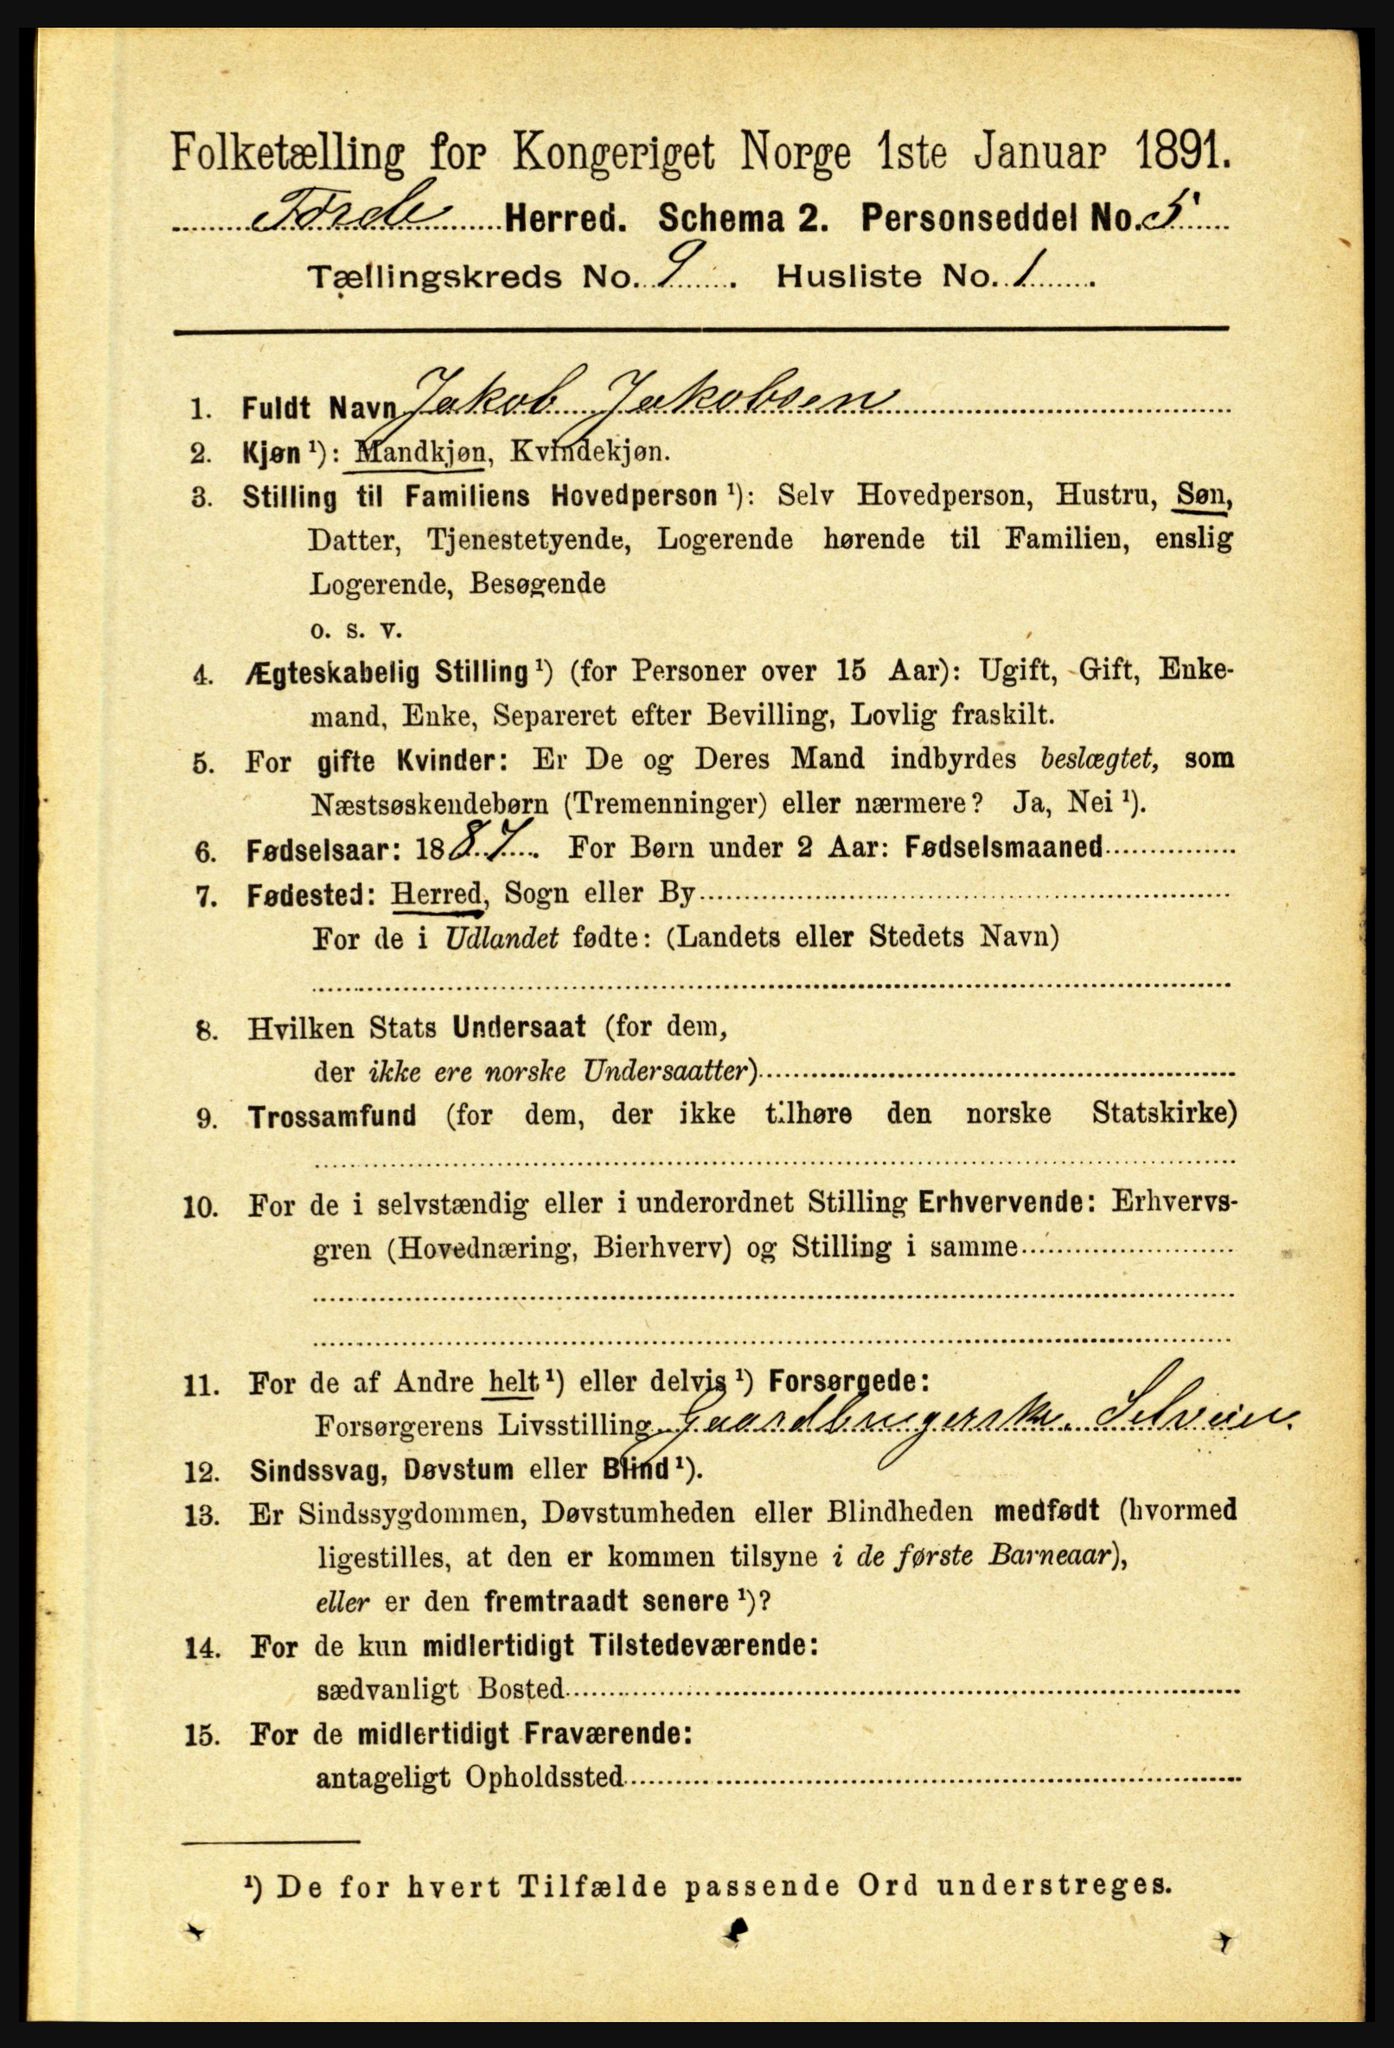 Folketælling for Kongeriget Norge 1ste Januar 1891.
Førde Herred. Schema 2. Personseddel No. 5
Tællingskreds No. 9. Husliste No. 1.
1. Fuldt Navn Jakob Jakobsen
2. Kjøn ¹): Mandkjøn, Kvindekjøn.
3. Stilling til Familiens Hovedperson ¹): Selv Hovedperson, Hustru, Søn,
Datter, Tjenestetyende, Logerende hørende til Familien, enslig
Logerende, Besøgende
o. s. v.
4. Ægteskabelig Stilling ¹) (for Personer over 15 Aar): Ugift, Gift, Enke-
mand, Enke, Separeret efter Bevilling, Lovlig fraskilt.
5. For gifte Kvinder: Er De og Deres Mand indbyrdes beslægtet, som
Næstsøskendebørn (Tremenninger) eller nærmere? Ja, Nei ¹).
6. Fødselsaar: 1887. For Børn under 2 Aar: Fødselsmaaned
7. Fødested: Herred, Sogn eller By
For de i Udlandet fødte: (Landets eller Stedets Navn)
8. Hvilken Stats Undersaat (for dem,
der ikke ere norske Undersaatter)
9. Trossamfund (for dem, der ikke tilhøre den norske Statskirke)
10. For de i selvstændig eller i underordnet Stilling Erhvervende: Erhvervs-
gren (Hovednæring, Bierhverv) og Stilling i samme
11. For de af Andre helt ¹) eller delvis ¹) Forsørgede:
Forsørgerens Livsstilling Gaardbrugerske. Selveier.
12. Sindssvag, Døvstum eller Blind ¹).
13. Er Sindssygdommen, Døvstumheden eller Blindheden medfødt (hvormed
ligestilles, at den er kommen tilsyne i de første Barneaar),
eller er den fremtraadt senere ¹)?
14. For de kun midlertidigt Tilstedeværende:
sædvanligt Bosted
15. For de midlertidigt Fraværende:
antageligt Opholdssted
¹) De for hvert Tilfælde passende Ord understreges.